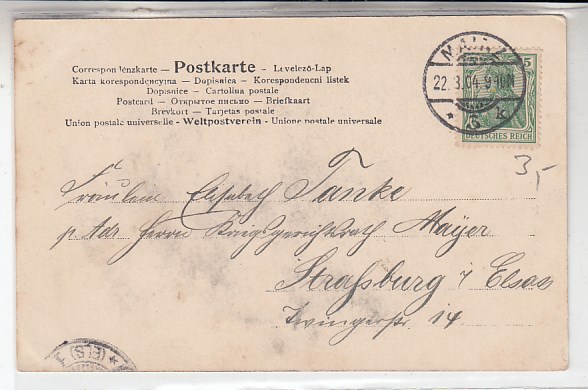 Correspondenzkarte – Postkarte – Levelező-Lap
Karta korespondencyjna – Dopisnica – Korespondenčni listek
Dopisnice – Cartolina postale
Postcard – Открытое письмо – Briefkaart
Brevkort – Tarjetas postale
Union postale universelle – Weltpostverein – Unione postale universale
MAINZ
5
22.3.04. 9-10N
* 6 k
DEUTSCHES REICH
3,-
Fräulein Elisabeth Tanke
p. Adr. Herrn Kriegsgerichtsrath Mayer
Straßburg i/ Elsass
Zwingerstr. 14
(ELS) *